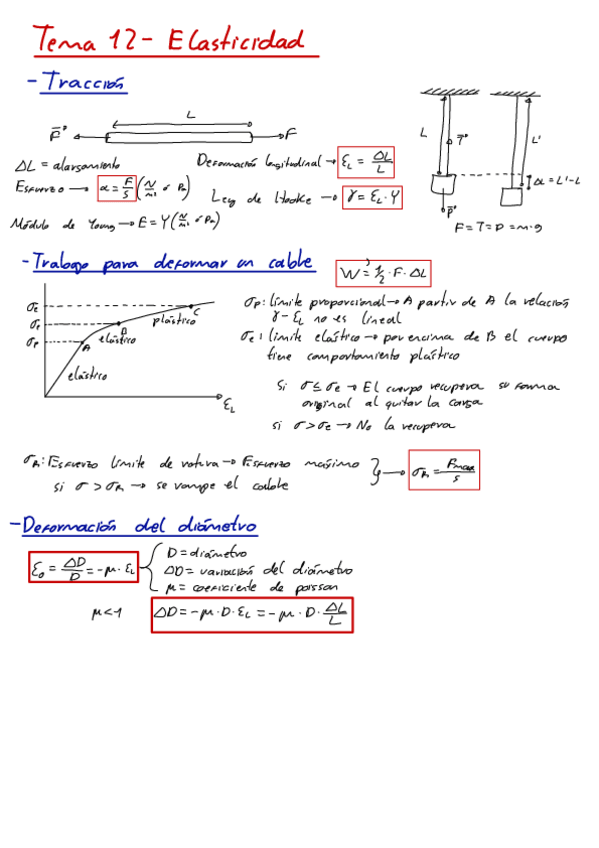 Tema 12- Elasticidad
- Tracción
L
F F
ΔL = alargamiento
Deformación longitudinal → εL = ΔL/L
Esfuerzo → α = F/S (N/m² ó Pa)
Ley de Hooke → γ = εL · Y
Módulo de Young → E = Y (N/m² ó Pa)
L T L'
ΔL = L'-L
P
F = T = P = m·g
- Trabajo para deformar un cable
W = 1/2 · F · ΔL
σe
σe
σP
A elástico
B
plástico
C
elástico
εL
σP: límite proporcional → A partir de A la relación
γ-εL no es lineal
σe: límite elástico → por encima de B el cuerpo
tiene comportamiento plástico
Si σ ≤ σe → El cuerpo recupera su forma
original al quitar la carga
si σ > σe → No la recupera
σR: Esfuerzo límite de rotura → Esfuerzo máximo } → σR = Fmax/S
si σ > σR → se rompe el cable
- Deformación del diámetro
εD = ΔD/D = -μ · εL
D = diámetro
ΔD = variación del diámetro
μ = coeficiente de poisson
μ<1
ΔD = -μ · D · εL = -μ · D · ΔL/L